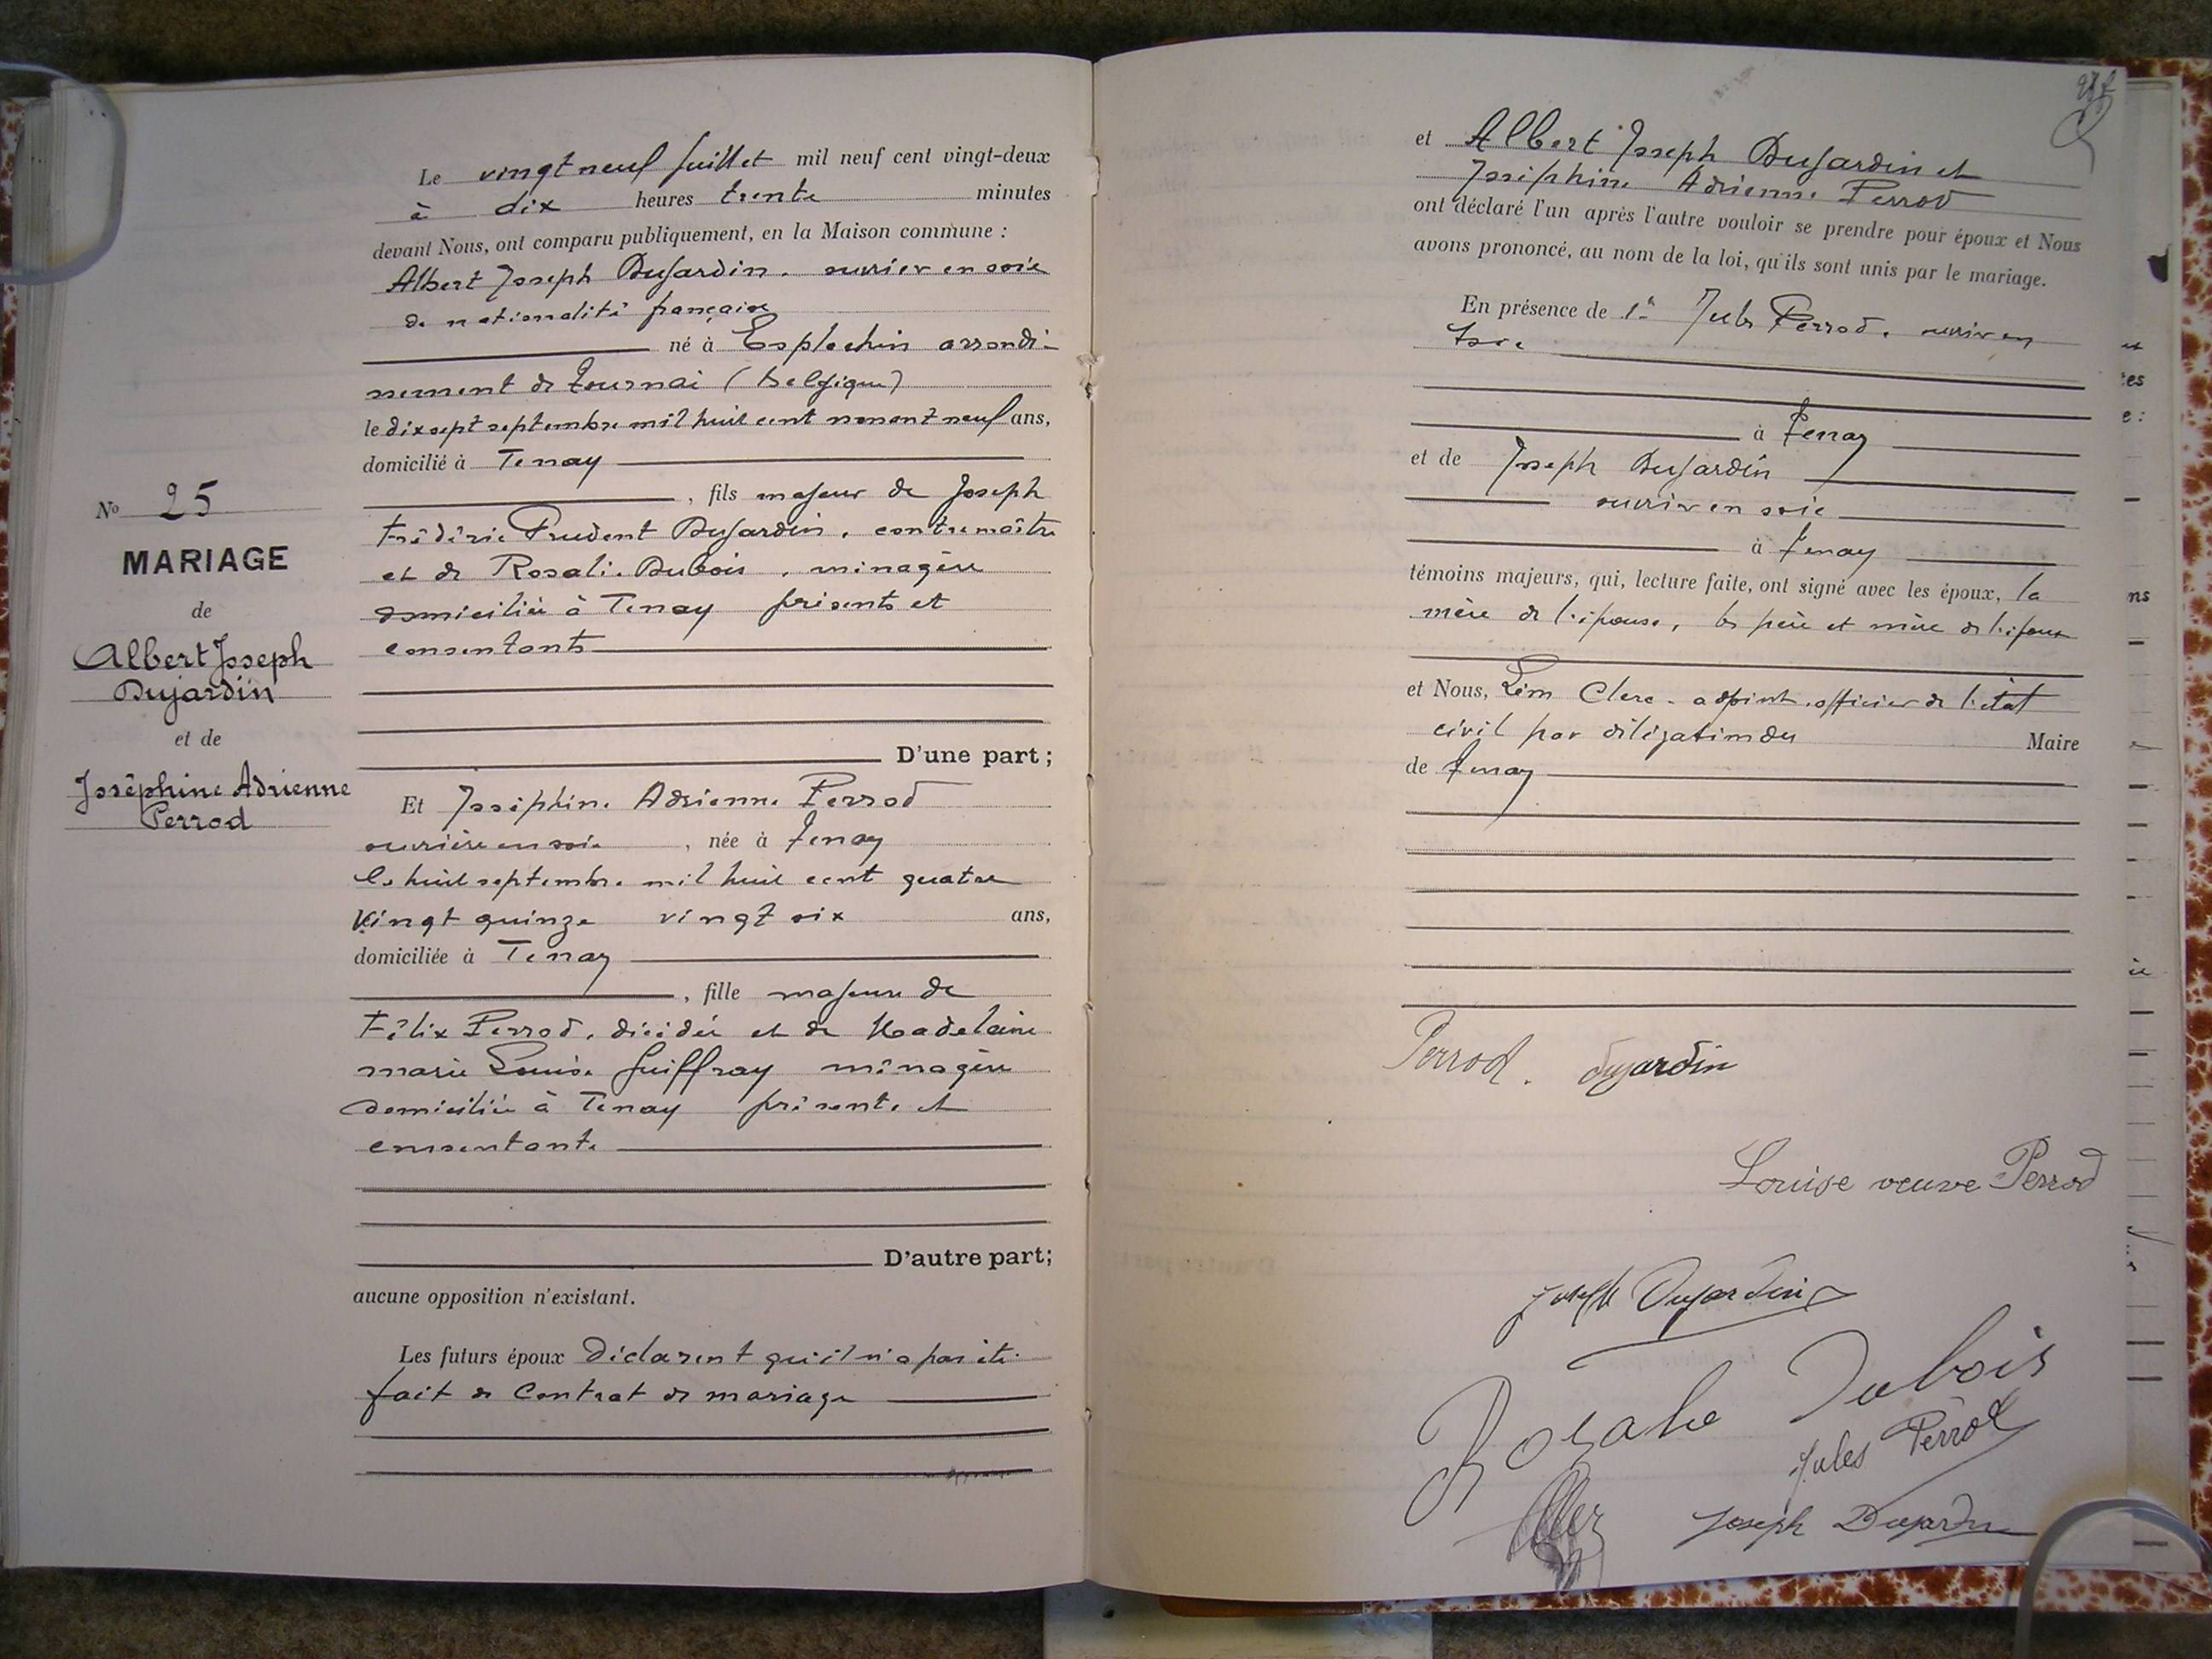 Le vingt neuf Juillet mil neuf cent vingt-deux
à dix heures trente minutes
devant Nous, ont comparu publiquement, en la Maison commune :
Albert Joseph Dujardin. ouvrier en soie
de nationalité française
né à Esplechin arrondi-
ssement de Tournai (Belgique)
le dix sept septembre mil huit cent nonant neuf ans,
domicilié à Tenay
, fils majeur de Joseph
Frédéric Prudent Dujardin, contremaître
et de Rosalie Dubois, ménagère
domiciliés à Tenay présents et
consentants
D'une part;
No 25
MARIAGE
de
Albert Joseph
Dujardin
et de
Joséphine Adrienne
Perrod
Et Joséphine Adrienne Perrod
ouvrière en soie, née à Tenay
le huit septembre mil huit cent quatre
vingt quinze vingt six ans,
domiciliée à Tenay
, fille majeure de
Félix Perrod, décédé et de Madelaine
marie Louise Guiffray ménagère
domiciliée à Tenay présente et
consentante
D'autre part;
aucune opposition n'existant.
Les futurs époux déclarent qu'il n'a pas été
fait de Contrat de mariage
et Albert Joseph Dujardin et
Joséphine Adrienne Perrod
ont déclaré l'un après l'autre vouloir se prendre pour époux et Nous
avons prononcé, au nom de la loi, qu'ils sont unis par le mariage.
En présence de 1° Jules Perrod, ouvrier en
soie
à Tenay
et de Joseph Dujardin
ouvrier en soie
à Tenay
témoins majeurs, qui, lecture faite, ont signé avec les époux, la
mère de l'épouse, les père et mère de l'époux
et Nous, Léon Clerc, adjoint, officier de l'état
civil par délégation du Maire
de Tenay
Perrod. Dujardin
Louise veuve Perrod
Joseph Dujardin
Rosalie Dubois
Jules Perrod
Joseph Dujardin